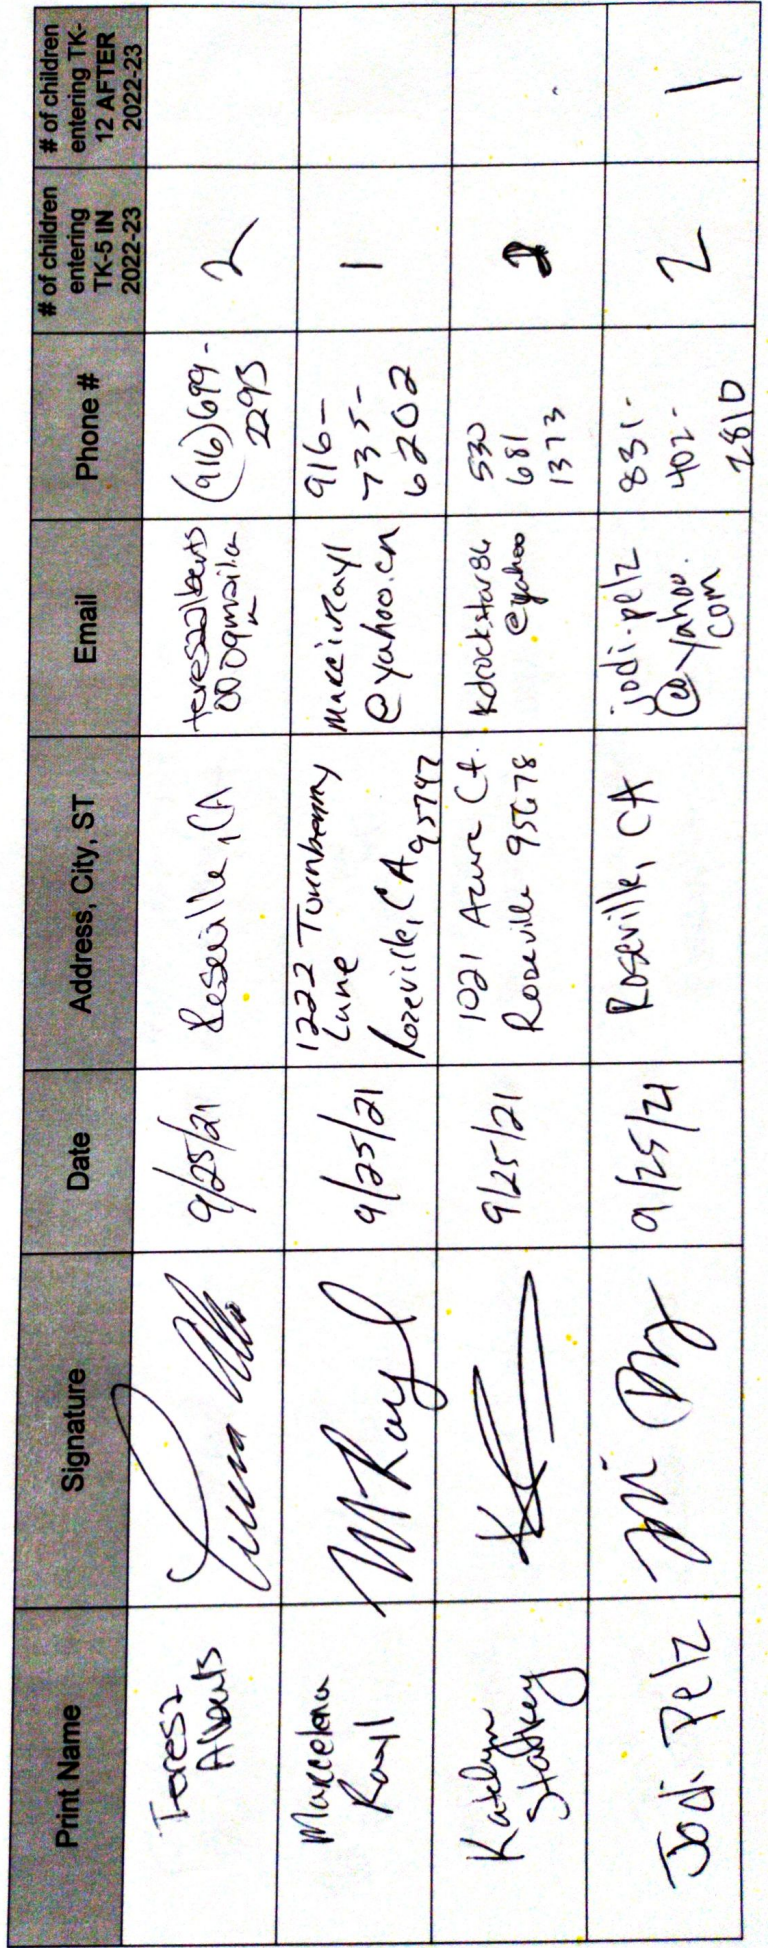 Print Name
Signature
Date
Address, City, ST
Email
Phone #
# of children
entering
TK-5 IN
2022-23
# of children
entering TK-
12 AFTER
2022-23
Teresa
Alberts
9/25/21
Roseville, CA
teresaalberts
00@gmail.c
(916)699-
2293
2
Marcelena
Rayl
M Rayl
9/25/21
1222 Turnberry
Lane
Roseville, CA 95747
@yahoo.cn
916-
735-
6202
1
Katelyn
Starkey
9/25/21
1021 Azure Ct.
Roseville 95678
Kdrockstar86
@yahoo
530
681
1373
2
Jodi Pelz
9/25/21
Roseville, CA
jodi-pelz
@yahoo.
com
831-
402-
2810
2
1